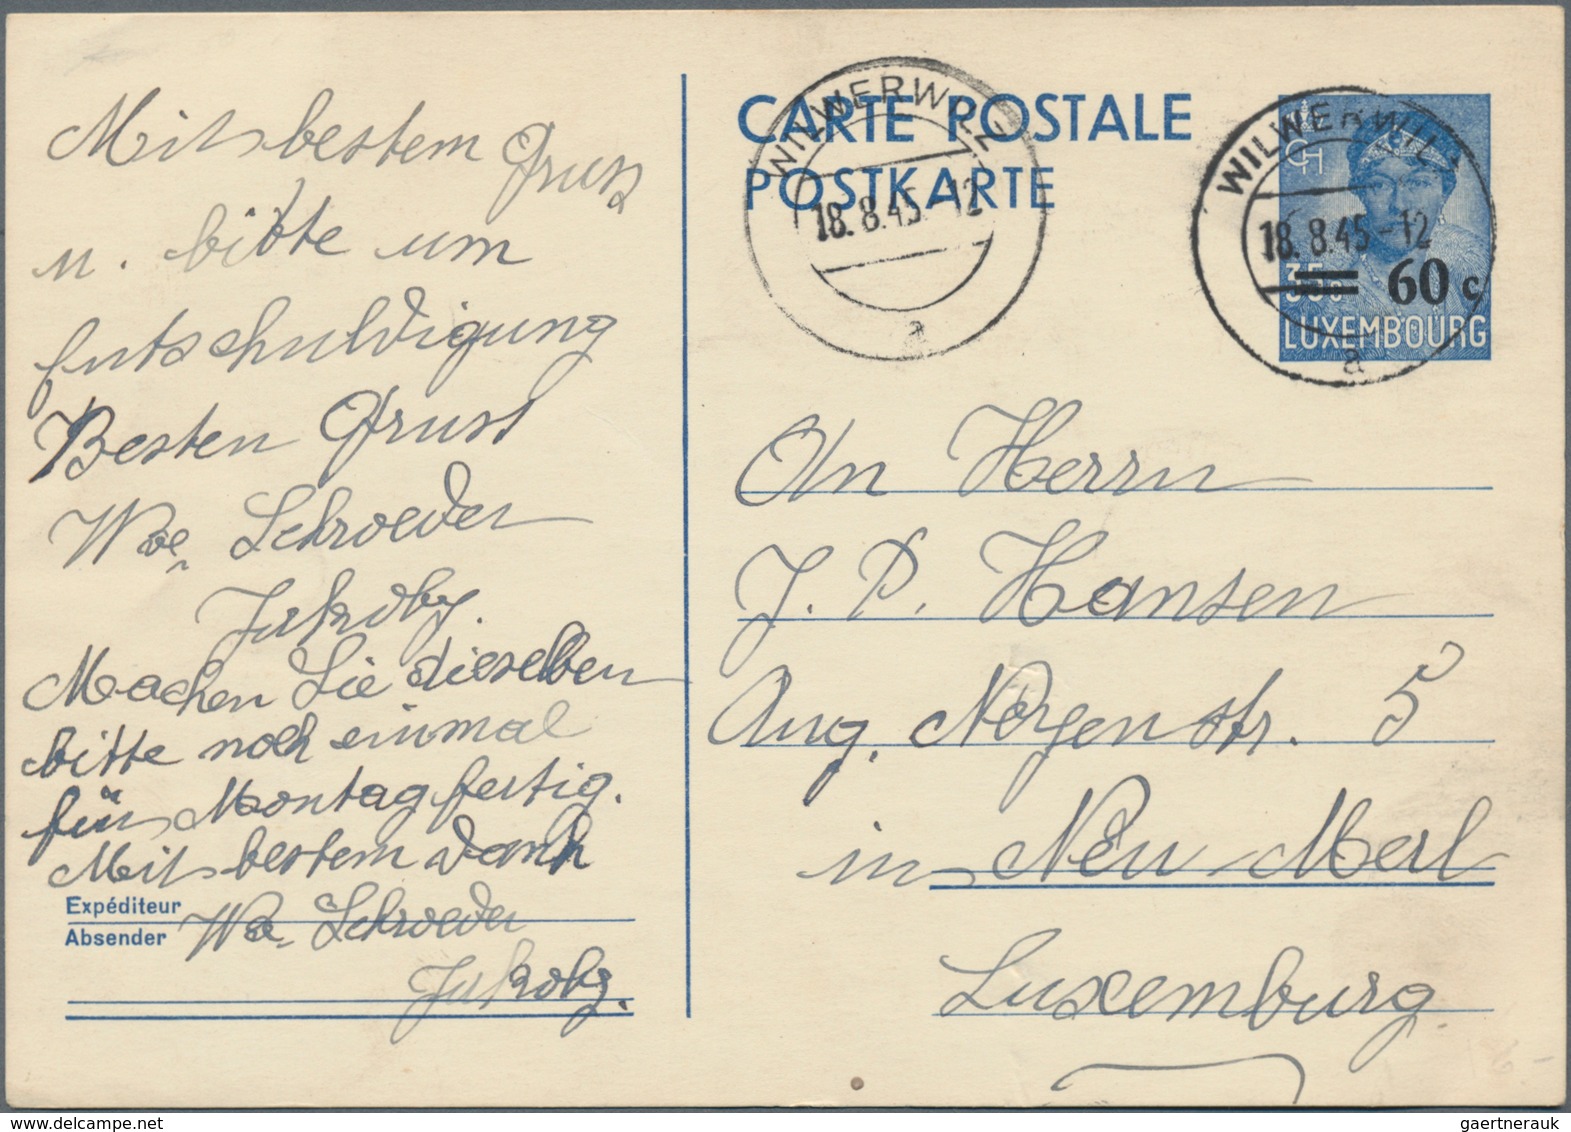 Mit bestem Gruss
u. bitte um
Entschuldigung
Besten Gruss
Wwe Schroeder
Jakoby.
Machen Sie dieselben
bitte noch einmal
für Montag fertig.
Mit bestem Dank
Expéditeur
Absender
Wwe Schroeder
Jakoby.
CARTE POSTALE
POSTKARTE
WILWERWILZ
18.8.45-12
a
WILWERWILZ
18.8.45-12
a
35c
60 c
LUXEMBOURG
An Herrn
J. P. Hansen
Aug. str. 5
in Neu Merl
Luxemburg.
gaertnerauk